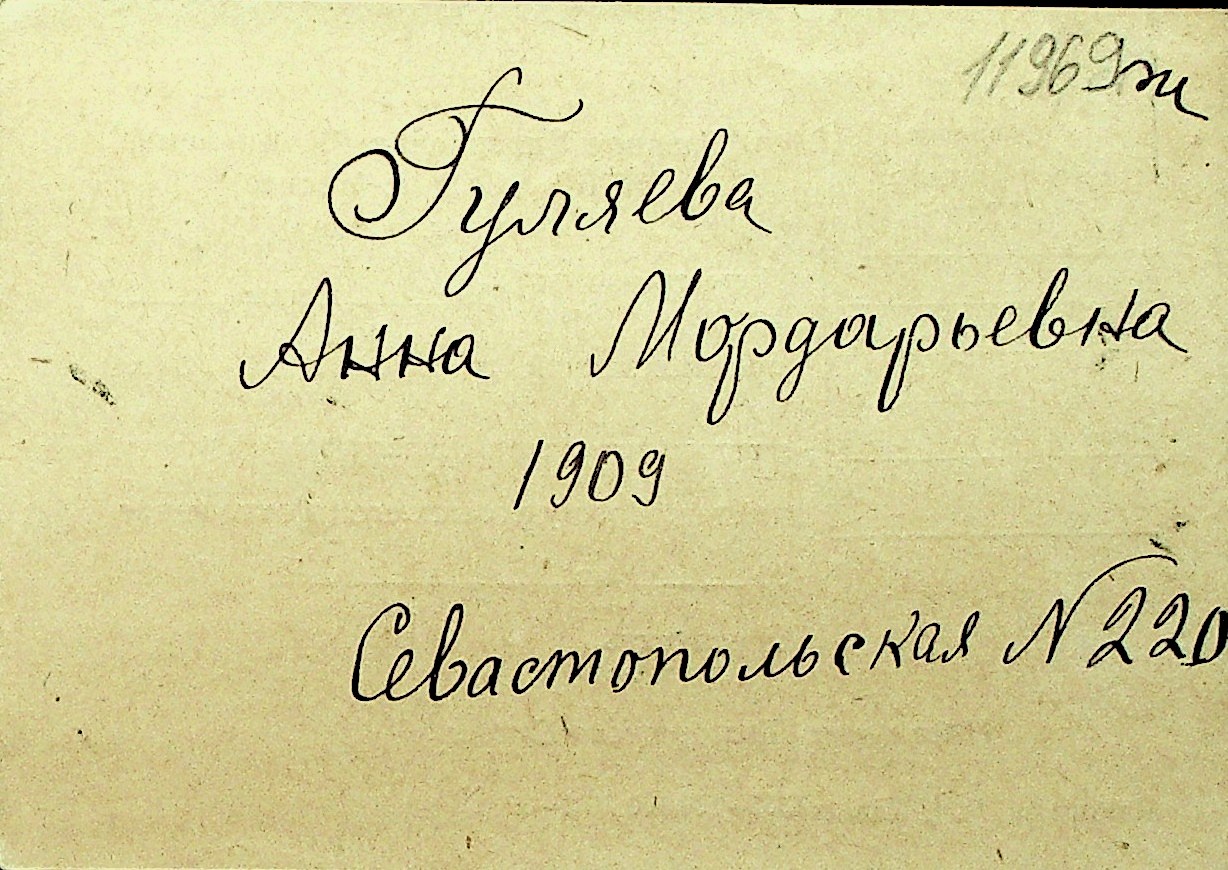 11969ж
Гуляева
Анна Мордарьевна
1909
Севастопольская № 220